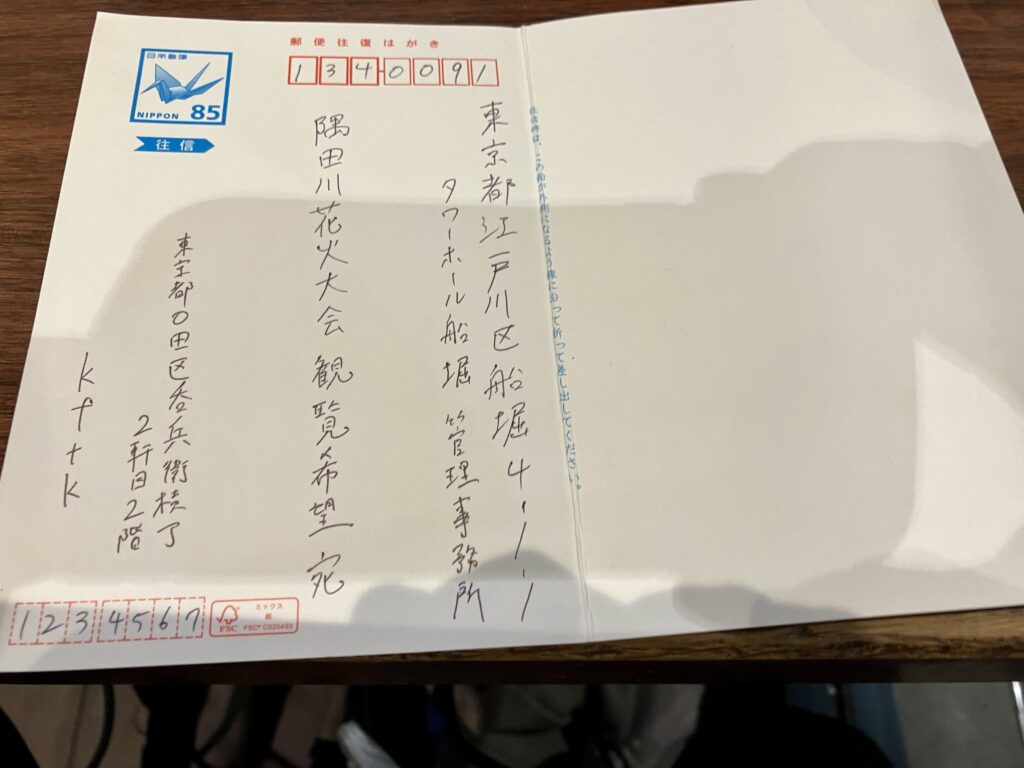 郵便往復はがき
日本郵便
NIPPON 85
往信
134-0091
東京都江戸川区船堀4-1-1
タワーホール船堀 管理事務所
隅田川花火大会 観覧希望 宛
東京都〇田区呑兵衛横丁
2軒目2階
kftk
1234567
ミックス
紙
FSC
FSC® C020493
往信時は、この面が外側になるよう線に沿って折って差し出してください。